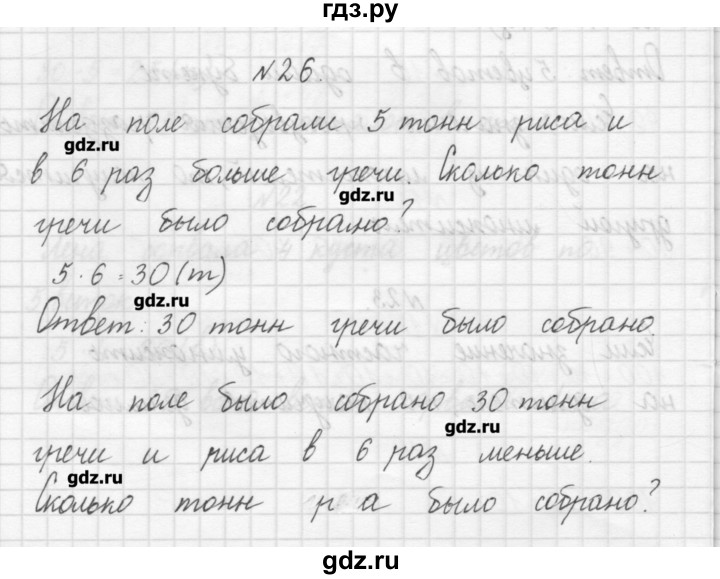 гдз.ру
№26.
На поле собрали 5 тонн риса и
gdz.ru
в 6 раз больше гречи. Сколько тонн
gdz.ru
гречи было собрано?
5·6=30(т)
gdz.ru
Ответ: 30 тонн гречи было собрано.
На поле было собрано 30 тонн
gdz.ru
гречи и риса в 6 раз меньше.
gdz.ru
Сколько тонн р а было собрано?
gdz.ru